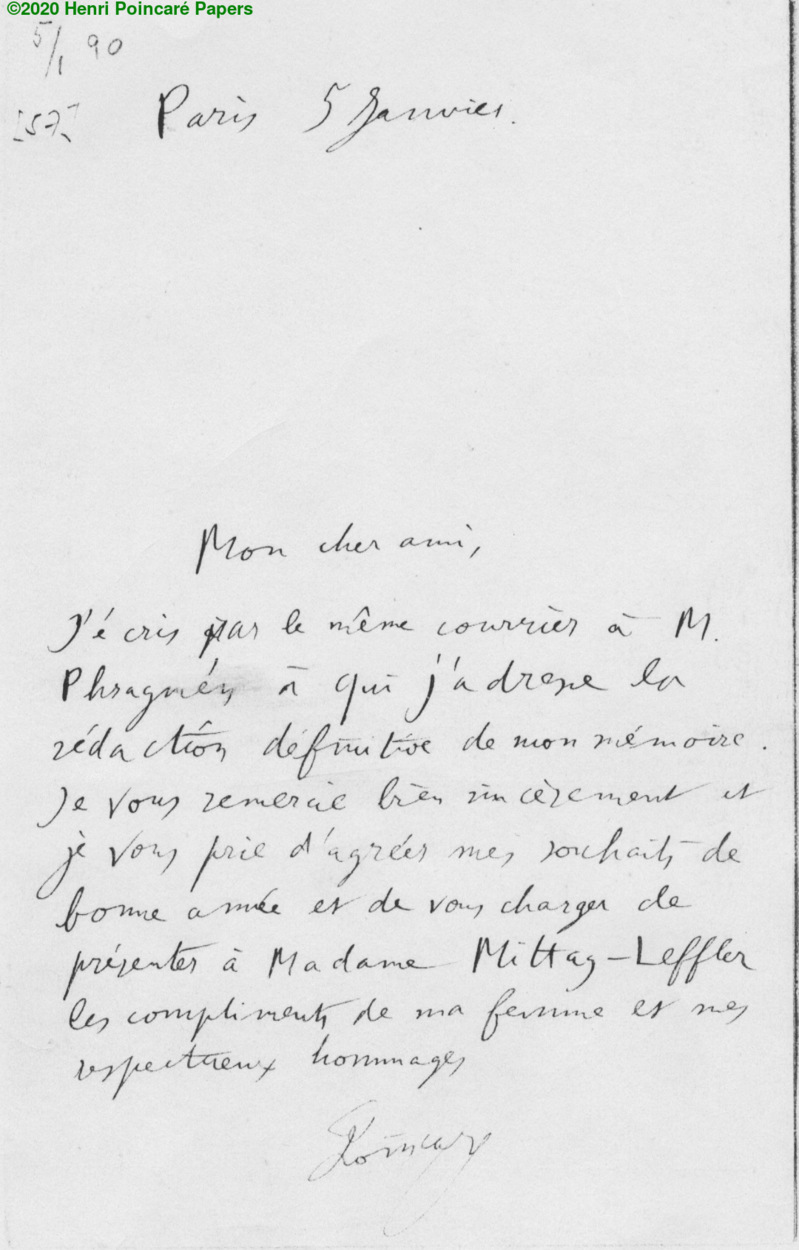 ©2020 Henri Poincaré Papers
5/1 90
[57]
Paris 5 Janvier.
Mon cher ami,
J'écris par le même courrier à M.
Phragmén à qui j'adresse la
rédaction définitive de mon mémoire.
Je vous remercie bien sincèrement et
je vous prie d'agréer mes souhaits de
bonne année et de vous charger de
présenter à Madame Mittag-Leffler
les compliments de ma femme et mes
respectueux hommages
Poincaré